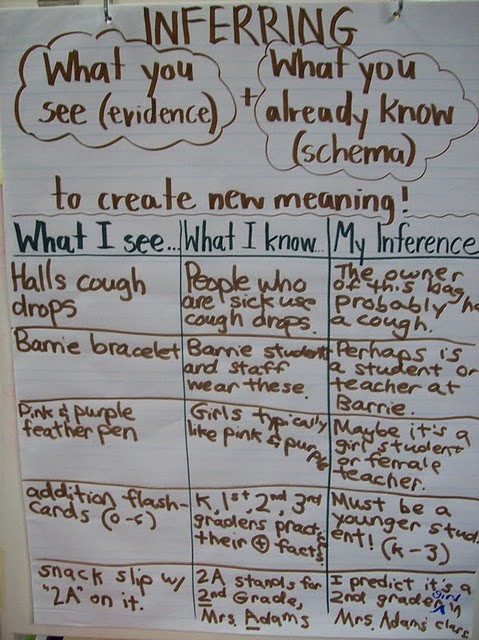 INFERRING
What you
see (evidence)
+
What you
already know
(schema)
to create new meaning!
What I see...
What I know...
My Inference
Halls cough
drops
People who
are sick use
cough drops.
The owner
of this bag
probably ha
a cough.
Barrie bracelet
Barrie students
and staff
wear these.
Perhaps is
a student or
teacher at
Barrie.
Pink & purple
feather pen
Girls typically
like pink & purple
Maybe it's a
girl student
or female
teacher.
addition flash-
cards
K, 1st, 2nd, 3rd
graders practice
their + facts
Must be a
younger stud-
ent! (K-3)
snack slip w/
"2A" on it.
2A stands for
2nd Grade,
Mrs. Adams
I predict it's a
2nd grader girl in
Mrs. Adams' class